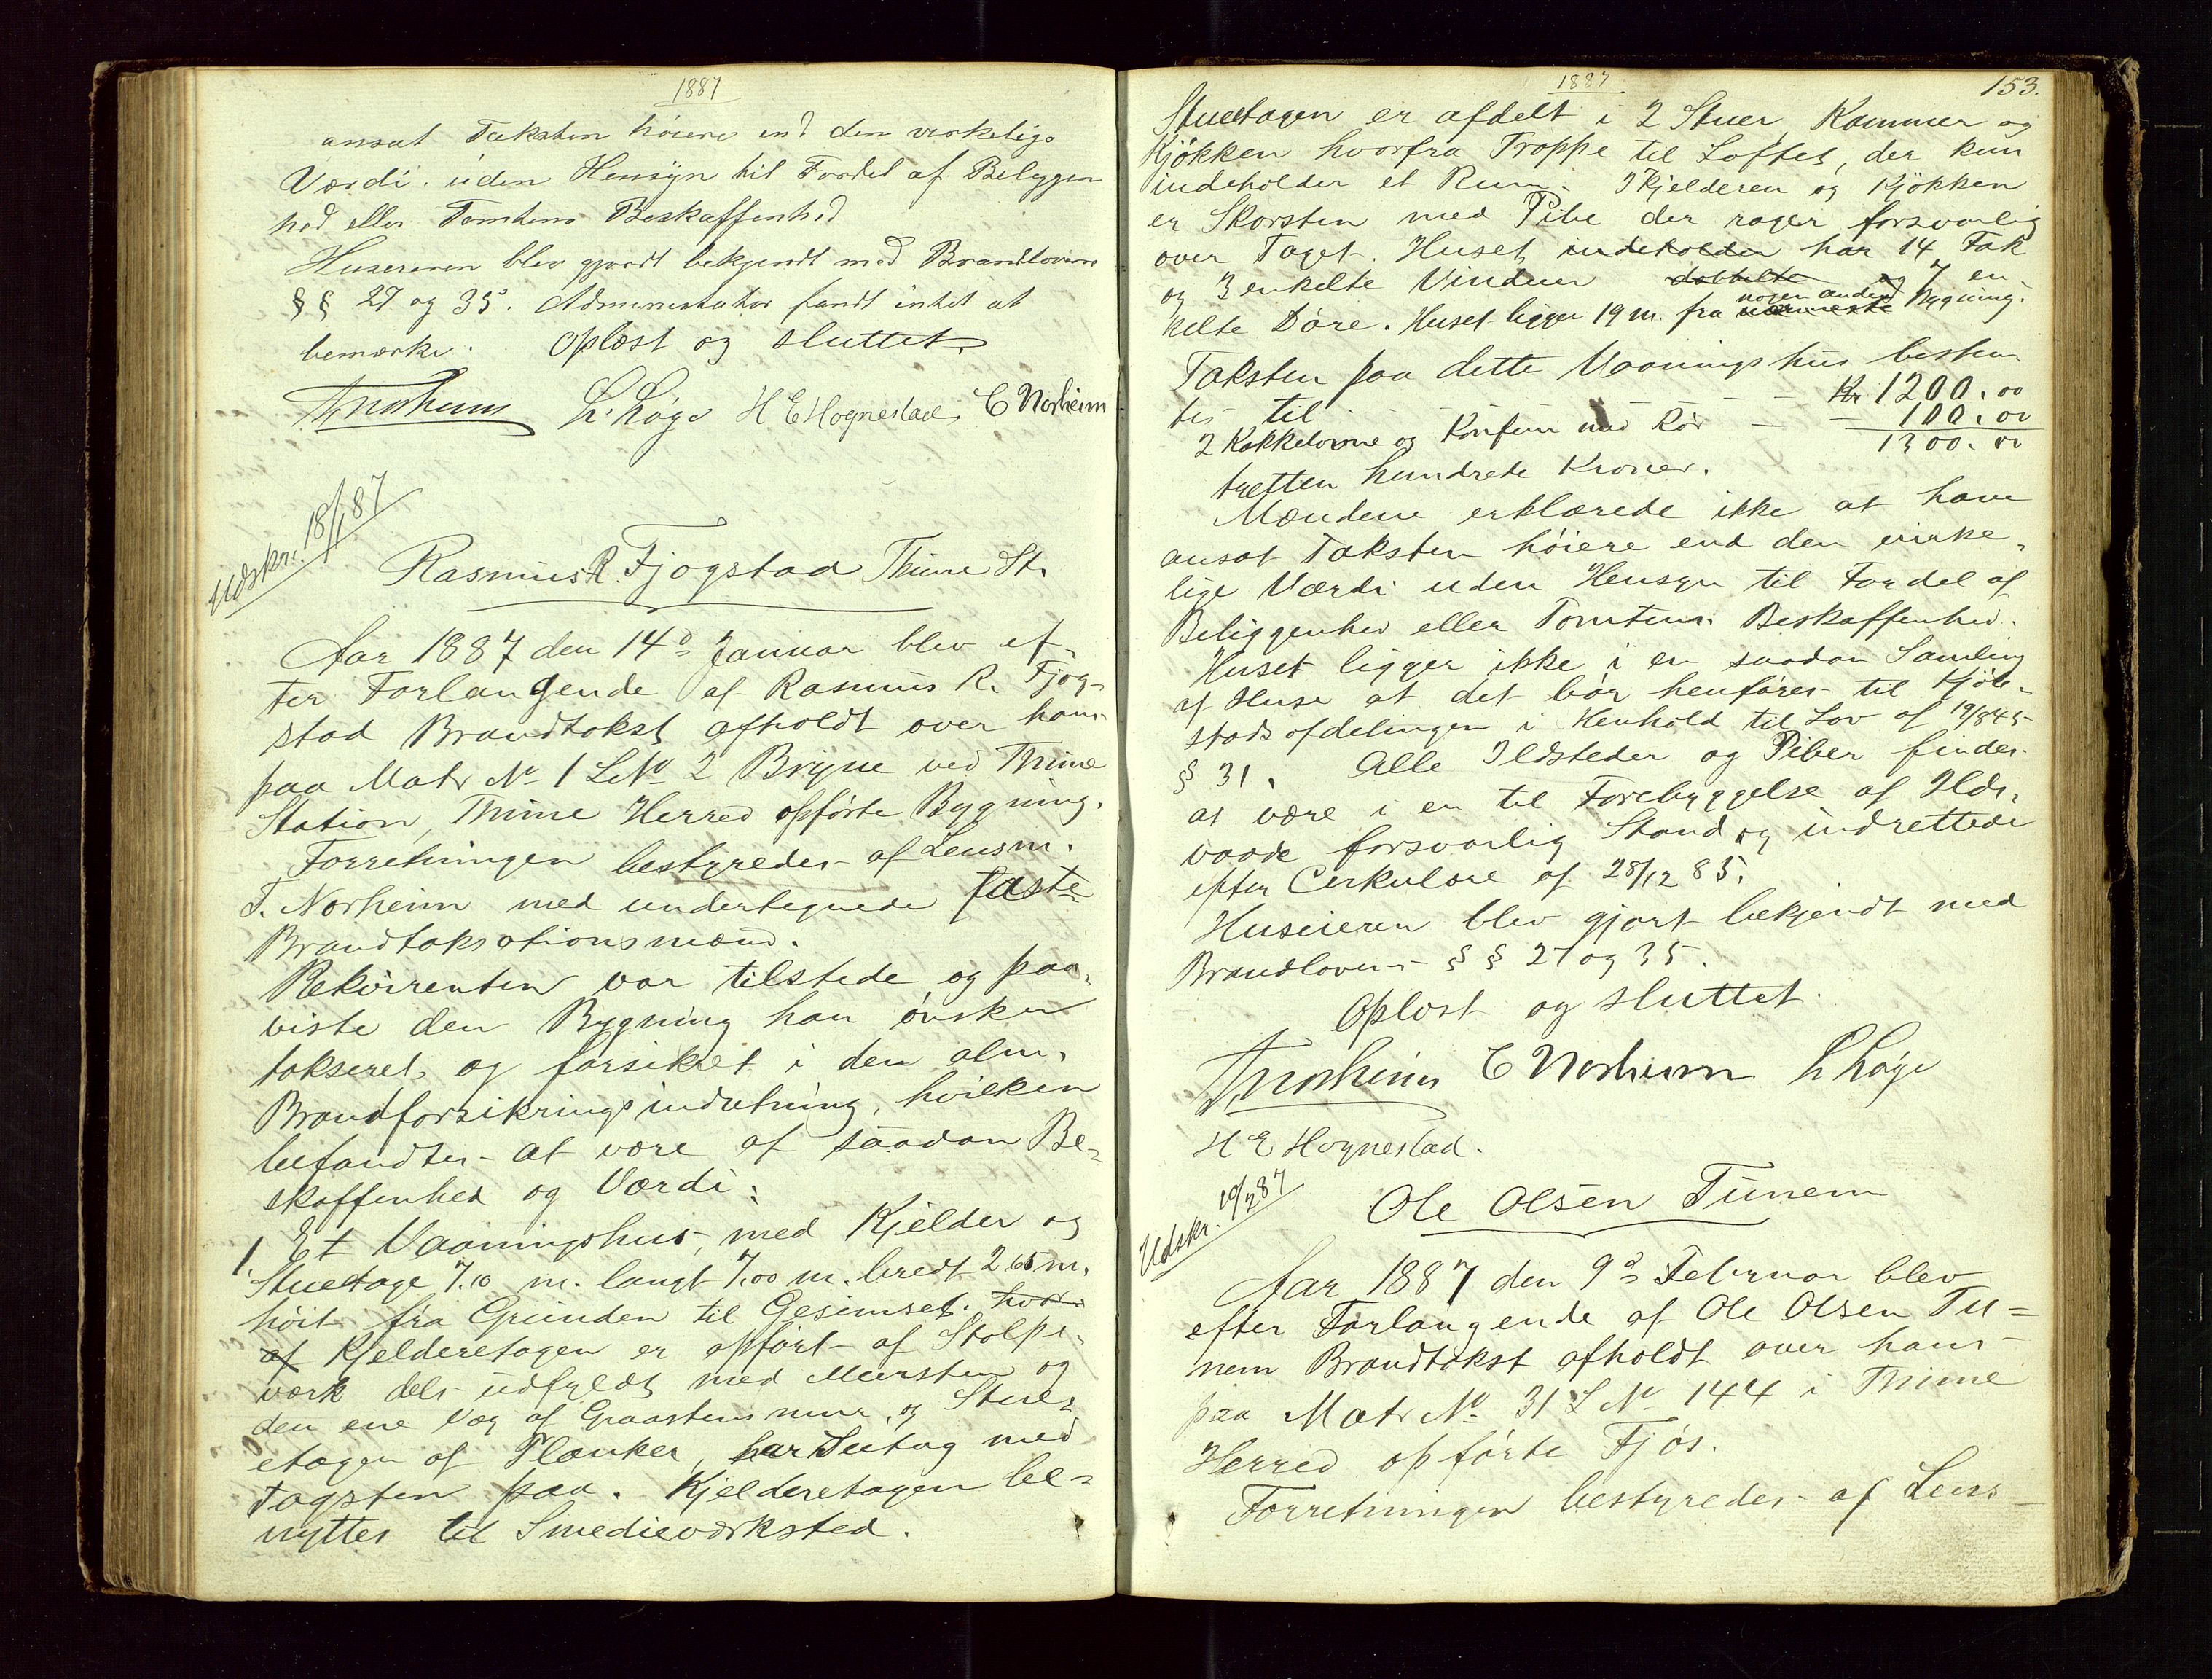 1887
ansat Taksten höiere end den verkelige
Værdi. uden Hensyn til Fordel af Beliggen
hed eller Tomtens Beskaffenhed
Huseieren blev gjordt bekjendt med Brandlovens
§§ 27 og 35. Administrator fandt intet at
bemærke. Oplæst og sluttet.
T. Norheim L. Löge H E Hognestad, C Norheim
Udskr. 18/1 87
Rasmus R. Fjogstad Thime St.
Aar 1887 den 14de Januar blev ef-
ter Forlangende af Rasmus R. Fjog-
stad Brandtakst afholdt over hans
paa Matr No 1 LNo 2 Bryne ved Thime
Station, Thime Herred opförte Bygning.
Forretningen bestyredes af Lensm.
T. Norheim med undertegnede faste
Brandtaksationsmænd.
Rekvirenten var tilstede og paa-
viste den Bygning han önsker
takseret og forsikret i den alm.
Brandforsikringsindretning, hvilken
befandtes at være af saadan Be-
skaffenhed og Værdi:
1. Et Vaaningshus, med Kjelder og
Stuetage 7.10 m. langt 7.00 m. bredt 2.65 m.
höit fra Grunden til Gesimset. hvor
af Kjelderetagen er opfört af Stolpe-
værk dels udfyldt med Mursten og
den ene Væg af Graastensmur, og Stue-
etagen af Planker, har Sutag med
Tagsten paa. Kjelderetagen be-
nyttes til Smedieværksted.
1887
153.
Stueetagen er afdelt i 2 Stuer, Kammer og
Kjökken hvorfra Trappe til Loftet, der kun
indeholder et Rum. I Kjelderen og Kjökken
er Skorsten med Pibe der rager forsvarlig
over Taget. Huset indeholder har 14 Fak
og 3 enkelte Vinduer dobbelte og 7 en
kelte Döre. Huset ligger 19 m. fra nærmeste nogen anden Bygning.
Taksten paa dette Vaaningshus bestem
tes til Kr 1200.00
2 Kakkelovne og Komfur med Rör 100.00
1300.00
tretten hundrede Kroner.
Mændene erklærede ikke at have
ansat Taksten höiere end den virke-
lige Værdi uden Hensyn til Fordel af
Beliggenhed eller Tomtens Beskaffenhed.
Huset ligger ikke i en saadan Samling
af Huse at det bör henföres til Kjöb-
stadsafdelingen i Henhold til Lov af 19/8 45
§ 31. Alle Ildsteder og Piber findes
at være i en til Forebyggelse af Ilds-
vaade forsvarlig Stand og indrettede
efter Cerkulære af 28/12 85.
Huseieren blev gjort bekjendt med
Brandlovens §§ 27 og 35.
Oplæst og sluttet.
T. Norheim C Norheim L Löge
H E Hognestad.
Udskr. 10/2 87
Ole Olsen Tunem
Aar 1887 den 9de Februar blev
efter Forlangende af Ole Olsen Tu=
nem Brandtakst afholdt over hans
paa Matr No 31 L No 144 i Thime
Herred opförte Fjös.
Forretningen bestyredes af Lens-